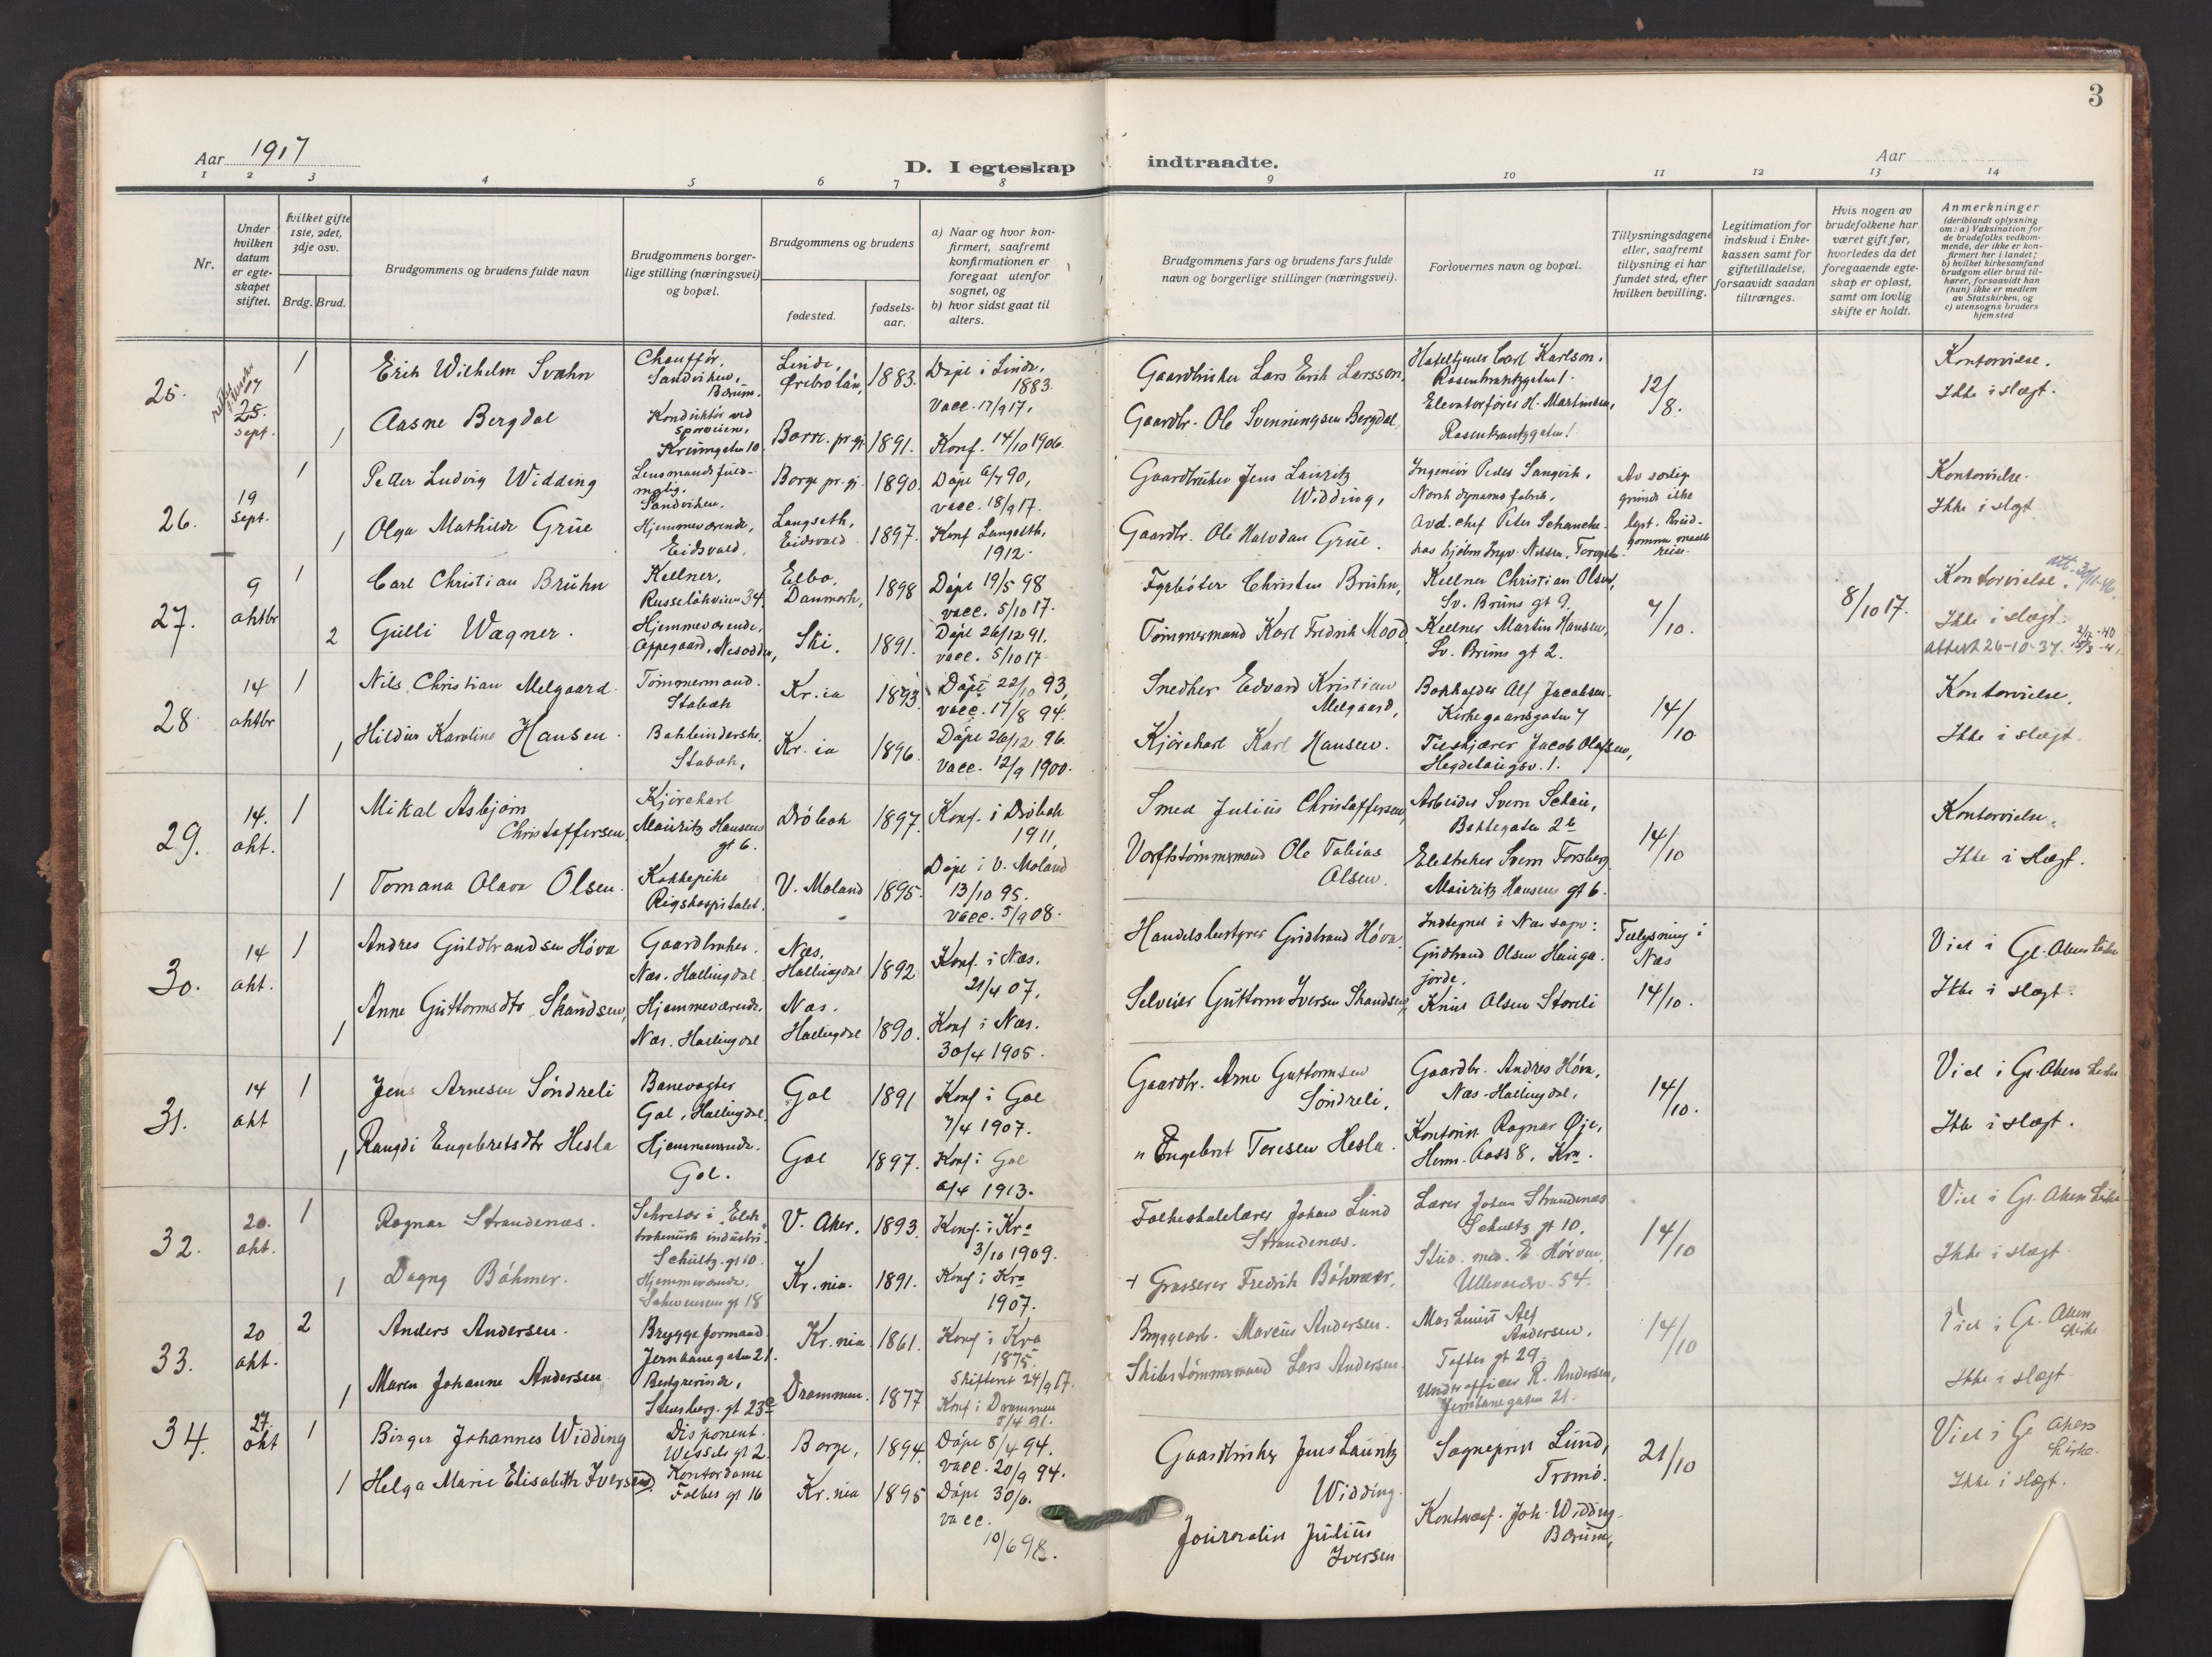 3
Aar 1917
D. I egteskap indtraadte.
Aar
1 2 3 4 5 6 7 8 9 10 11 12 13 14
Nr.
Under hvilken datum er egteskapet stiftet.
hvilket gifte 1ste, 2det, 3dje osv.
Brdg. Brud.
Brudgommens og brudens fulde navn
Brudgommens borgerlige stilling (næringsvei) og bopæl.
Brudgommens og brudens
fødested.
fødselsaar.
a) Naar og hvor konfirmert, saafremt konfirmationen er foregaat utenfor sognet, og
b) hvor sidst gaat til alters.
Brudgommens fars og brudens fars fulde navn og borgerlige stillinger (næringsvei).
Forlovernes navn og bopæl.
Tillysningsdagene eller, saafremt tillysning ei har fundet sted, efter hvilken bevilling.
Legitimation for indskud i Enkekassen samt for giftetilladelse, forsaavidt saadan tiltrænges.
Hvis nogen av brudefolkene har været gift før, hvorledes da det foregaaende egteskap er opløst, samt om lovlig skifte er holdt.
Anmerkninger
(deriblandt oplysning om: a) Vaksination for de brudefolks vedkommende, der ikke er konfirmert her i landet; b) hvilket kirkesamfund brudgom eller brud tilhører, forsaavidt han (hun) ikke er medlem av Statskirken, og c) utensogns bruders hjemsted
25.
25. sept.
1
Erik Wilhelm Svahn
Chauffør, Sandviken, Bærum.
Linde, Ørebro län,
1883.
Døpt i Linde, 1883.
Vacc. 17/9 17.
Gaardbruker Lars Erik Larsson,
Hoteltjener Carl Karlson.
Rosenkrantzgaten 1.
12/8.
Kontorvielse.
Ikke i slegt.
1
Aasne Bergdal
Konduktør ved sporveiene,
Borre pr.gj.
1891.
Konf. 14/10 1906.
Gaardbr. Ole Svenningsen Bergdal
Elevatorfører H. Martinsen,
Rosenkrantzgaten 1
26.
19 sept.
1
Peder Ludvig Widding
Lensmandsfuldmegtig.
Sandviken.
Borge pr.gj.
1890.
Døpt 6/7 90,
vacc. 18/9 17.
Gaardbruker Jens Lauritz Widding,
Ingeniør Peder Sangvik,
Norsk dynamo fabrik,
Kontorvielse.
Ikke i slegt
1
Olga Mathilde Grue
Hjemmeværende,
Eidsvold.
Langseth, Eidsvold
1897.
Konf Langseth, 1912.
Gaardbr. Ole Halvdan Grue.
Avd. chef Peter Schancke
27.
9 oktbr
1
Carl Christian Bruhn
Kellner,
Russeløkveien 34.
Elbo, Danmark,
1898
Døpt 19/5 98
vacc. 5/10 17.
Fyrbøter Christen Bruhn,
Kellner Christian Olsen,
Sv. Bruns gt 9.
7/10.
8/10 17.
Kontorvielse.
Ikke i slegt.
attest 26-10-37.
2
Gulli Wagner.
Hjemmeværende,
Oppegaard, Nesodden,
Ski.
1891.
Døpt 26/12 91.
vacc. 5/10 17.
Tømmermand Karl Fredrik Mood
Kellner Martin Hansen,
Sv. Bruns gt 2.
28.
14 oktbr
1
Nils Christian Melgaard.
Tømmermand.
Stabæk
Kr.ia
1893
Døpt 22/10 93,
vacc. 17/8 94.
Snedker Edvard Kristian Melgaard,
Bokholder Alf Jacobsen.
Kirkegaardsgaten 7
14/10
Kontorvielse.
Ikke i slegt.
1
Hildur Karoline Hansen.
Bokbinderske.
Stabæk,
Kr.ia
1896.
Døpt 26/12 96.
Vacc. 12/9 1900.
Kjørekarl Karl Hansen.
Tilskjærer Jacob Olafsen,
Hegdehaugsv. 1.
29.
14. okt.
1
Mikal Asbjørn Christoffersen
Kjørekarl
Mauritz Hansens gt 6.
Drøbak
1897.
Konf. i Drøbak 1911,
Smed Julius Christoffersen,
Arbeider Svem Schau,
Bakkegaten 2b
14/10
Kontorvielse.
Ikke i slegt.
1
Tomana Olava Olsen.
Kokkepike
Rigshospitalet.
V. Moland
1895.
Døpt i V. Moland
13/10 95.
vacc. 5/9 08.
Verftstømmermand Ole Tobias Olsen.
Elektriker Svem Forsberg
Mauritz Hansens gt 6.
30.
14 okt.
1
Andres Guldbrandsen Høva
Gaardbruker.
Næs. Hallingdal
Næs, Hallingdal
1892
Konf. i Næs.
21/4 07,
Handelsbestyrer Gudbrand Høva.
Indtegnet i Næs sogn:
Gudbrand Olsen Haugajorde.
Tillysning i Næs
14/10.
Viet i Gl. Akers kirke
Ikke i slegt.
1
Anne Guttormsdtr. Skandsen,
Hjemmeværende.
Næs. Hallingdal
Næs. Hallingdal
1890.
Konf i Næs.
30/4 1905.
Selveier Guttorm Iversen Skandsen,
Knut Olsen Storeli
31.
14 okt
1
Jens Arnesen Søndreli
Banevogter
Gol, Hallingdal
Gol
1891
Konf i Gol
7/4 1907.
Gaardbr. Arne Guttormsen Søndreli,
Gaardbr. Andres Høva,
Næs. Hallingdal,
14/10.
Viet i Gl. Akers kirke
Ikke i slegt.
1
Rangdi Engebretsdtr Hesla
Hjemmeværende.
Gol.
Gol
1897.
Konf i Gol
6/4 1913.
" Engebret Toresen Hesla.
Kontorist Ragnar Øje,
Herm. Foss 8, Kra.
32.
20. okt.
1
Ragnar Strandenæs.
Sekretær i "Elektrokemisk industri".
Schultz. gt 10.
V. Aker.
1893.
Konf. i Kra
3/10 1909.
Folkeskolelærer Johan Lund Strandenæs.
Lærer Johan Strandenæs
Schultz gt 10,
14/10
Viet i Gl. Akers kirke
Ikke i slegt.
1
Dagny Böhmer.
Hjemmeværende.
Kr.nia.
1891.
Konf i Kra
1907.
+ Grosserer Fredrik Böhmer,
Stud. med. E Hørven,
Ullevoldsv. 54.
33.
20 okt.
2
Anders Andersen.
Bryggeformand.
Jernbanegaten 21.
Kr.nia
1861.
Konf i Kra
1875.
Skifteret 24/9 17.
Bryggearb. Marcus Andersen.
Alf Andersen,
Toftes gt 29.
14/10
Viet i Gl. Akers kirke
Ikke i slegt.
1
Maren Johanne Andersen
Bestyrerinde,
Stensberg. gt 23
Drammen.
1877
Konf i Drammen
5/4 91.
Skibstømmermand Lars Andersen.
Underofficer R. Andersen,
Jernbanegaten 21.
34.
27. okt
1
Birger Johannes Widding
Disponent.
Wessels gt 2.
Borge,
1894.
Døpt 8/4 94.
vacc. 20/9 94.
Gaardbruker Jens Lauritz Widding.
Sogneprest Lund,
Tromø.
21/10
Viet i Gl Akers kirke.
Ikke i slegt.
1
Helga Marie Elisabeth Iversen.
Kontordame
Falbes gt 16
Kr.nia
1895
Døpt 30/6.
vacc.
10/6 98.
Journalist Julius Iversen
Kontorchef. Joh. Widding.
Bærum,